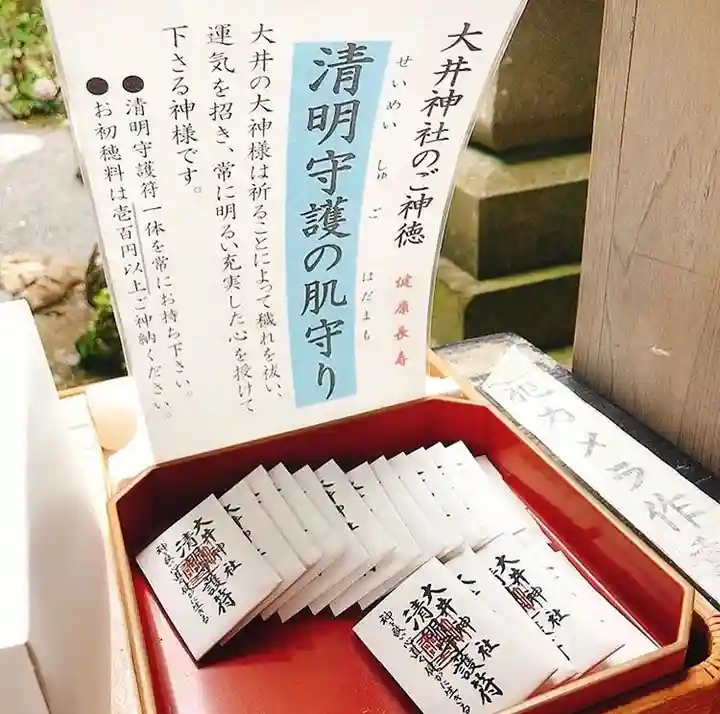 大井神社のご神徳
健康長寿
せいめい しゅ ご はだまも
清明守護の肌守り
大井の大神様は祈ることによって穢れを祓い、
運気を招き、常に明るい充実した心を授けて
下さる神様です。
●清明守護符一体を常にお持ち下さい。
●お初穂料は壱百円以上ご神納ください。
犯カメラ作
大井神社
清明守護符
大井神社
清明守護符
大井神社